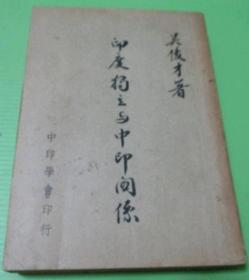 吴俊才著
印度獨立与中印関係
中印學會印行